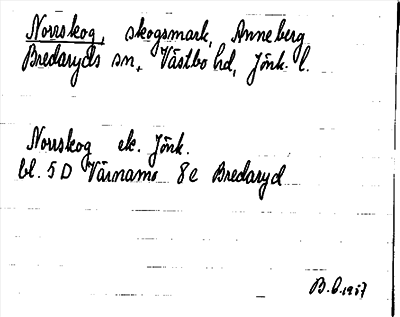 Norrskog, skogsmark, Anneberg
Bredaryds sn, Västbo hd, Jönk. l.
Norrskog ek. Jönk.
bl. 5D Värnamo 8c Bredaryd
B.O. 1957